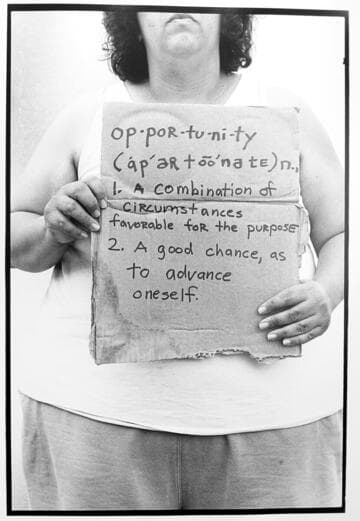 op·por·tu·ni·ty
(áp′əR tōō′nətE) n.,
1. A combination of
circumstances
favorable for the purpose
2. A good chance, as
to advance
oneself.